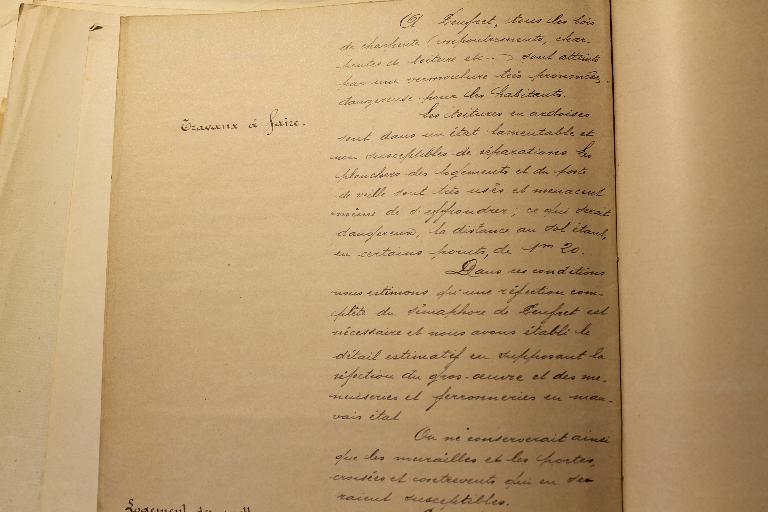 A Penfret, tous les bois
de charpente (empoutrements, char-
pentes de toiture etc...) sont atteints
par une vermoulure très prononcée,
dangereuse pour les habitants.
Les toitures en ardoises
Travaux à faire.
sont dans un état lamentable et
non susceptibles de réparations. Les
planchers des logements et du poste
de veille sont très usés et menacent
même de s'effondrer; ce qui serait
dangereux, la distance au sol étant,
en certains points, de 1m 20.
Dans ces conditions
nous estimons qu'une réfection com-
plète du sémaphore de Penfret est
nécessaire et nous avons établi le
détail estimatif en supposant la
réfection du gros-œuvre et des me-
nuiseries et ferronneries en mau-
vais état
On ne conserverait ainsi
que les murailles et les portes,
croisées et contrevents qui en se-
raient susceptibles.
Logement